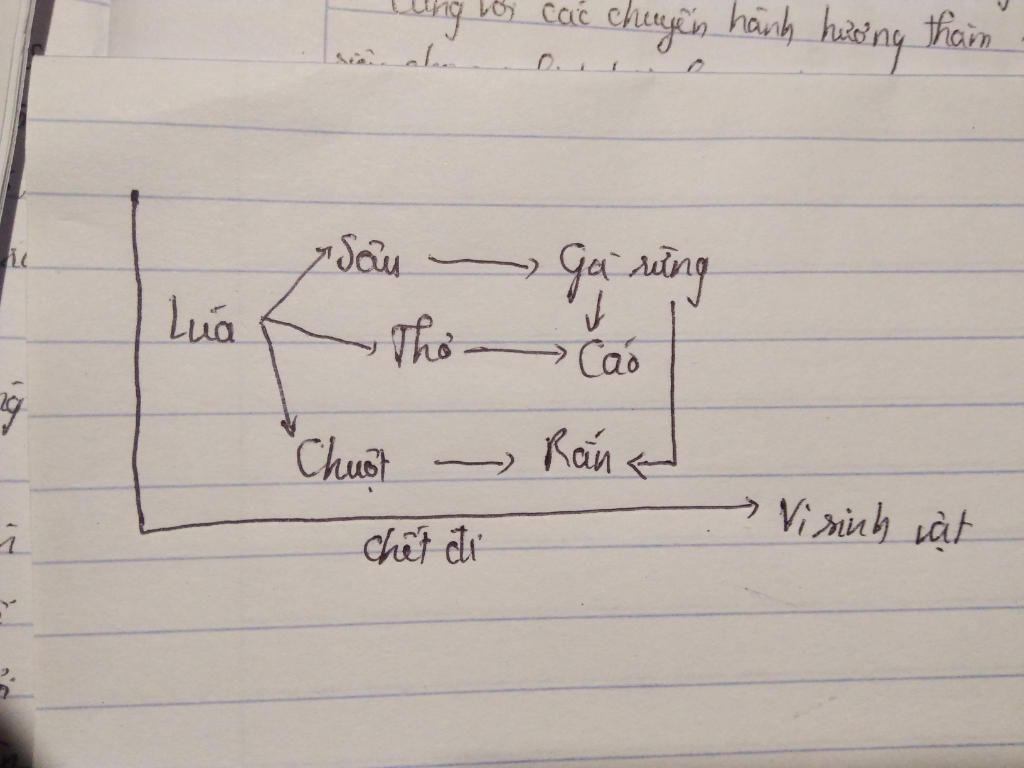 Cùng với các chuyến hành hương thăm
Sâu Gà rừng
Lúa Thỏ Cáo
Chuột Rắn
Vi sinh vật
chết đi